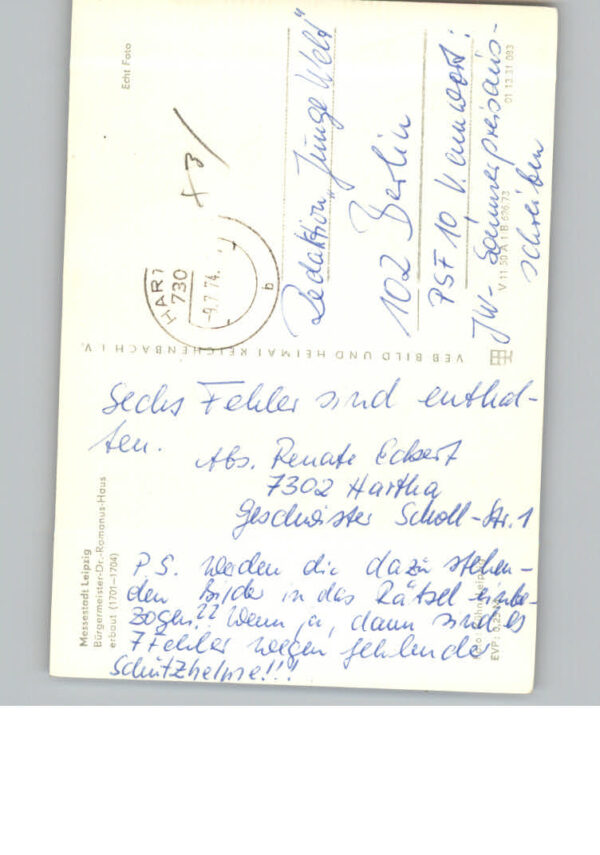 Sechs Fehler sind enthal-
ten.
Abs. Renate Eckert
7302 Hartha
Geschwister Scholl-Str. 1
P.S. werden die dazu stehen-
den Bilder in das Rätsel einbe-
zogen?? Wenn ja, dann sind es
7 Fehler wegen fehlender
Schutzhelme!!!
Messestadt Leipzig
Bürgermeister-Dr.-Romanus-Haus
erbaut (1701–1704)
EVP:
VEB BILD UND HEIMAT REICHENBACH I. V.
Echt Foto
+3/
HART
730
-9.7.74.
b
Redaktion „Junge Welt"
102 Berlin
PSF 10 Kennwort:
JW- Sommerpreisaus-
schreiben
V 11 50 A 1 B 626/73
01 13 31 083